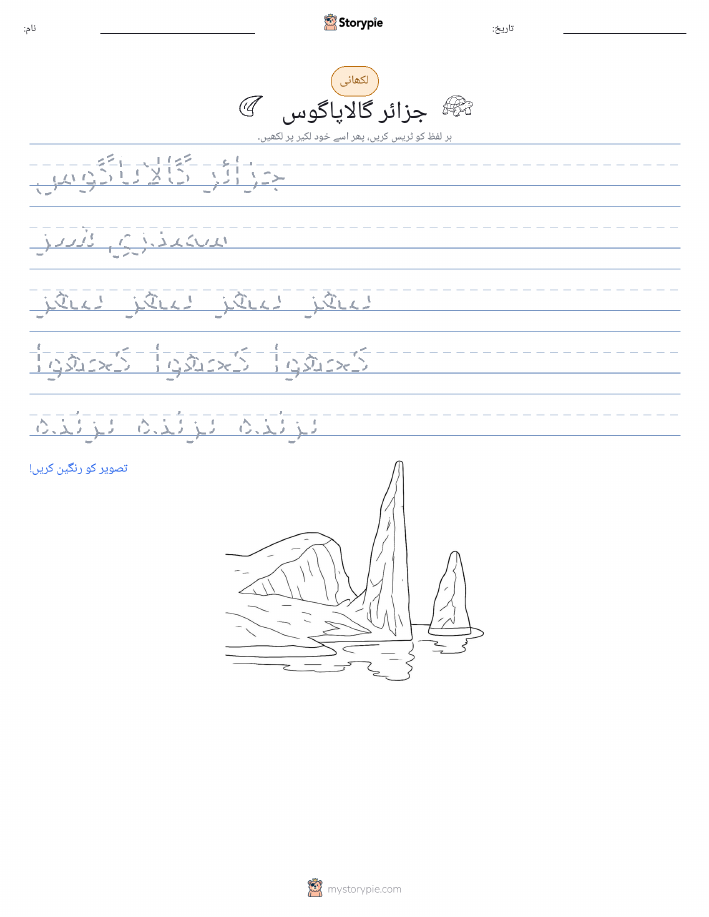 نام:
Storypie
تاریخ:
لکھائی
جزائر گالاپاگوس
ہر لفظ کو ٹریس کریں، پھر اسے خود لکیر پر لکھیں۔
جزائر گالاپاگوس
سمندری شیر
کچھوا کچھوا کچھوا
پرندہ پرندہ پرندہ
تصویر کو رنگین کریں!
mystorypie.com